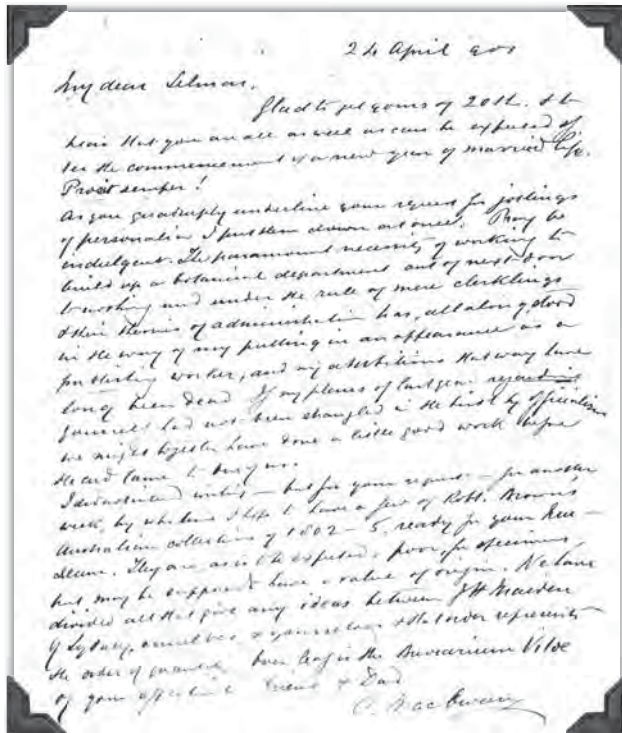 24 April 
My dear Selmar,
Glad to get yours of 20th. & to
hear that you are all as well as can be expected
the commencement of a new year of married life.
Prosit semper!
As you quadruply underline your request for jottings
of personalia I put them down at once. Pray be
indulgent. The paramount necessity of working to
build up a botanical department out of next door
to nothing and under the rule of mere clerklings
& their theories of administration has, all along, stood
in the way of my putting in an appearance as a
publishing worker, and my ambitions that way have
long been dead. If my plans of last year regarding
had not been strangled in the birth by officialism
we might together have done a little good work before
the end came to
I writing — but for your request — for another
week, by which time I hope to have a few of Robt. Brown's
Australian collections of 1802–5 ready for your
They are, as is to be expected, poor, for specimens,
but may be supposed to have a value of origin. We have
divided all that give any ideas between JH Maiden
of Sydney, ourselves & yourselves & that order represents
the order of quantity. Over leaf is the
of your affectionate friend & Dad